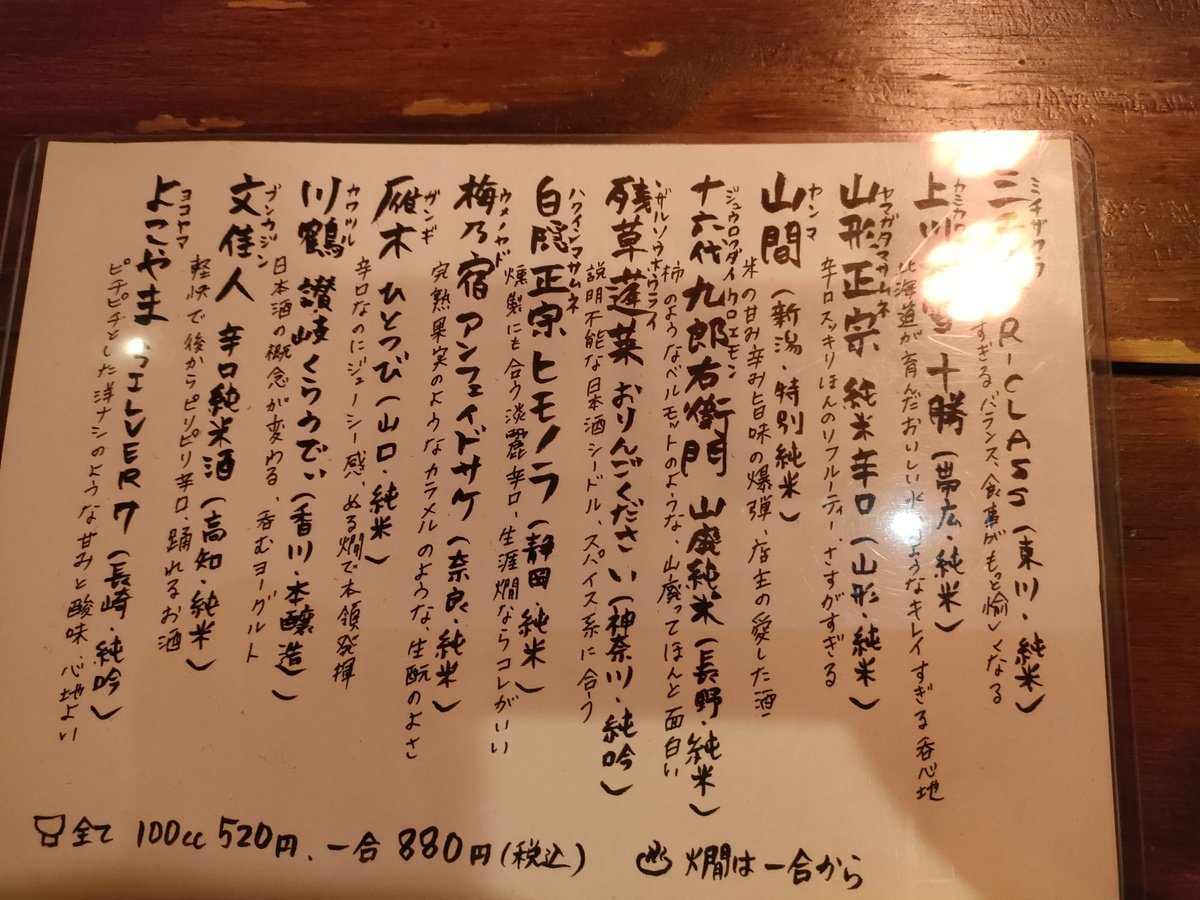 ミチザクラ
三千 R-CLASS(東川・純米)
すぎるバランス、食事がもっと愉しくなる
カミカ
上川 雪 十勝(帯広・純米)
北海道が育んだおいしい水のようなキレイすぎる呑心地
ヤマガタマサムネ
山形正宗 純米辛口(山形・純米)
辛口スッキリほんのりフルーティー、さすがすぎる
ヤンマ
山間(新潟・特別純米)
米の甘み辛み旨味の爆弾、店主の愛した酒
ジュウロクダイクロウエモン
十六代九郎右衛門 山廃純米(長野・純米)
柿のようなベルモットのような、山廃ってほんと面白い
ザルソウホウライ
残草蓬莱 おりんごください(神奈川・純吟)
説明不能な日本酒シードル、スパイス系に合う
ハクインマサムネ
白隠正宗 ヒモノラ(静岡・純米)
燻製にも合う淡麗辛口、生涯燗ならコレがいい
ウメノヤド
梅乃宿 アンフェイドサケ(奈良・純米)
完熟果実のようなカラメルのような、生酛のよさ
ガンギ
雁木 ひとつび(山口・純米)
辛口なのにジューシー感、ぬる燗で本領発揮
カワツル
川鶴 讃岐くらうでぃ(香川・本醸造)
日本酒の概念が変わる、呑むヨーグルト
ブンカジン
文佳人 辛口純米酒(高知・純米)
軽快で後からピリピリ辛口、踊れるお酒
ヨコヤマ
よこやま LVER 7(長崎・純吟)
ピチピチとした洋ナシのような甘みと酸味、心地よい
全て 100cc 520円、一合 880円(税込)
燗は一合から